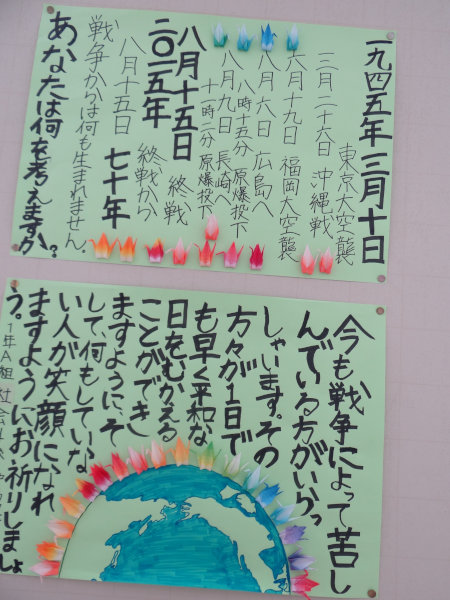 一九四五年三月十日
東京大空襲
三月二十六日 沖縄戦
六月十九日 福岡大空襲
八月六日 広島へ
八時十五分 原爆投下
八月九日 長崎へ
十一時二分 原爆投下
八月十五日 終戦
二〇一五年
八月十五日 終戦から
七十年
戦争からは何も生まれません。
あなたは何を考えますか?
今も戦争によって苦し
んでいる方がいらっ
しゃいます。その
方々が1日で
も早く平和な
日をむかえる
ことができ
ますように、そ
して、何もしていな
い人が笑顔になれ
ますようにお祈りしましょ
う。
1年A組 社会